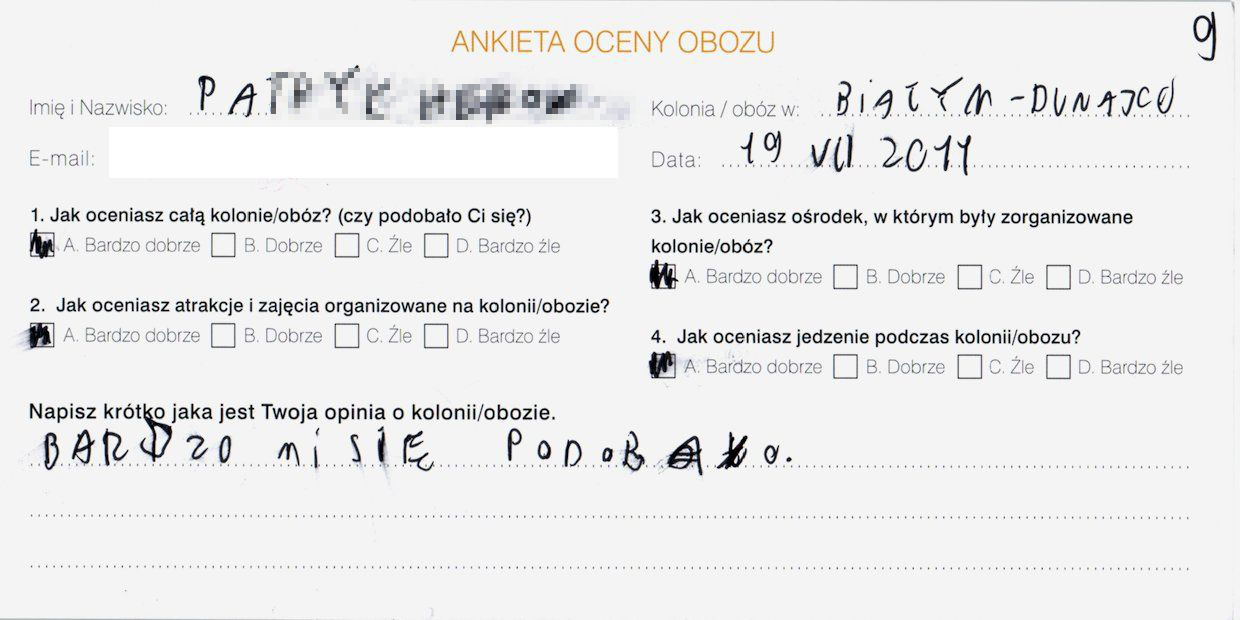 9
ANKIETA OCENY OBOZU
Imię i Nazwisko: PATRYK
Kolonia / obóz w: BIAŁYM-DUNAJCU
E-mail:
Data: 19 VII 2011
1. Jak oceniasz całą kolonie/obóz? (czy podobało Ci się?)
A. Bardzo dobrze B. Dobrze C. Źle D. Bardzo źle
2. Jak oceniasz atrakcje i zajęcia organizowane na kolonii/obozie?
A. Bardzo dobrze B. Dobrze C. Źle D. Bardzo źle
3. Jak oceniasz ośrodek, w którym były zorganizowane
kolonie/obóz?
A. Bardzo dobrze B. Dobrze C. Źle D. Bardzo źle
4. Jak oceniasz jedzenie podczas kolonii/obozu?
A. Bardzo dobrze B. Dobrze C. Źle D. Bardzo źle
Napisz krótko jaka jest Twoja opinia o kolonii/obozie.
BARDZO mi SIĘ PODOBAŁO.